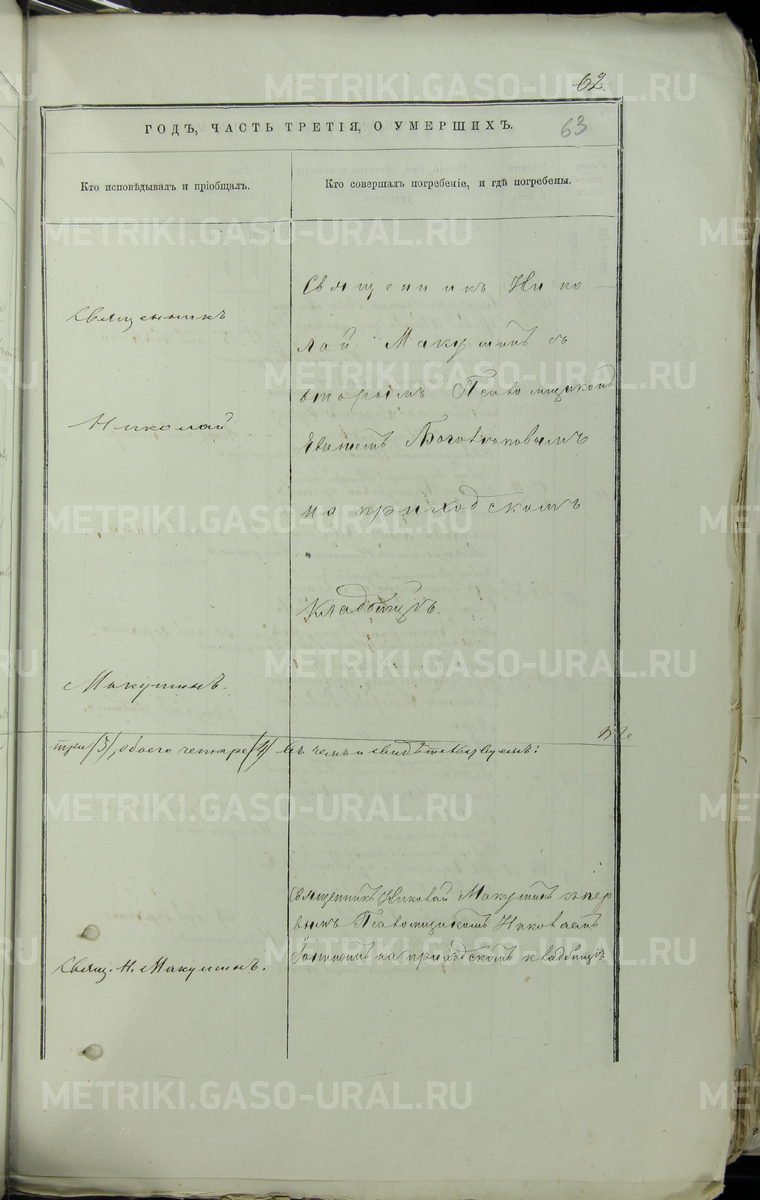 62.
63
ГОДЪ, ЧАСТЬ ТРЕТІЯ, О УМЕРШИХЪ.
Кто исповѣдывалъ и пріобщалъ.
Кто совершалъ погребеніе, и гдѣ погребены.
Священникъ
Николай
Макушинъ.
Священникъ Нико
лай Макушинъ съ
вторымъ Псаломщикомъ
на приходскомъ
кладбищѣ.
три (3), обоего четыре (4) Въ чемъ и свидѣтельствуемъ:
Свящ. Н. Макушинъ.
Священникъ Николай Макушинъ съ пер
вымъ Псаломщикомъ Николаемъ
на приходскомъ кладбищѣ
METRIKI.GASO-URAL.RU